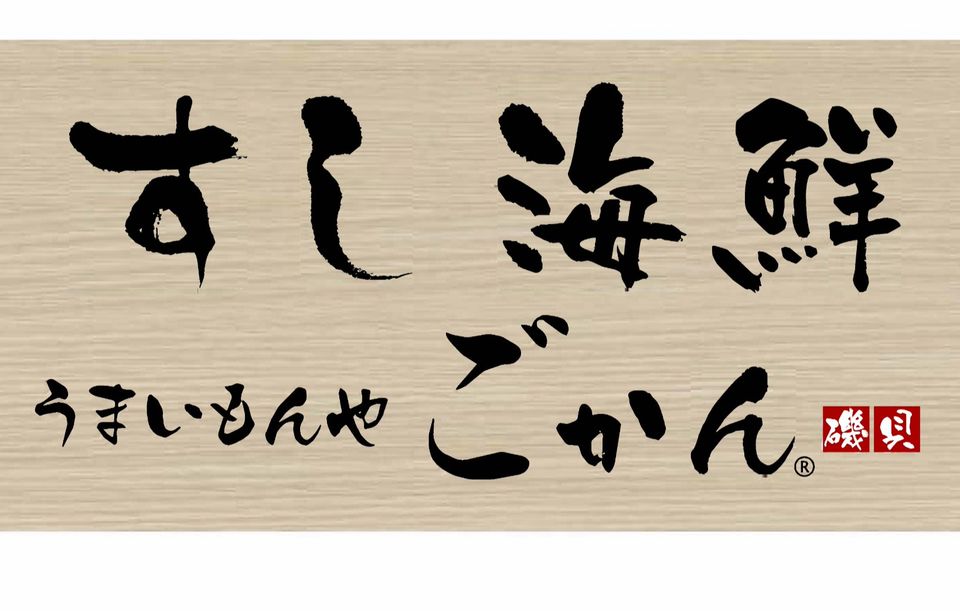 すし 海鮮
うまいもんや ごかん® 磯貝